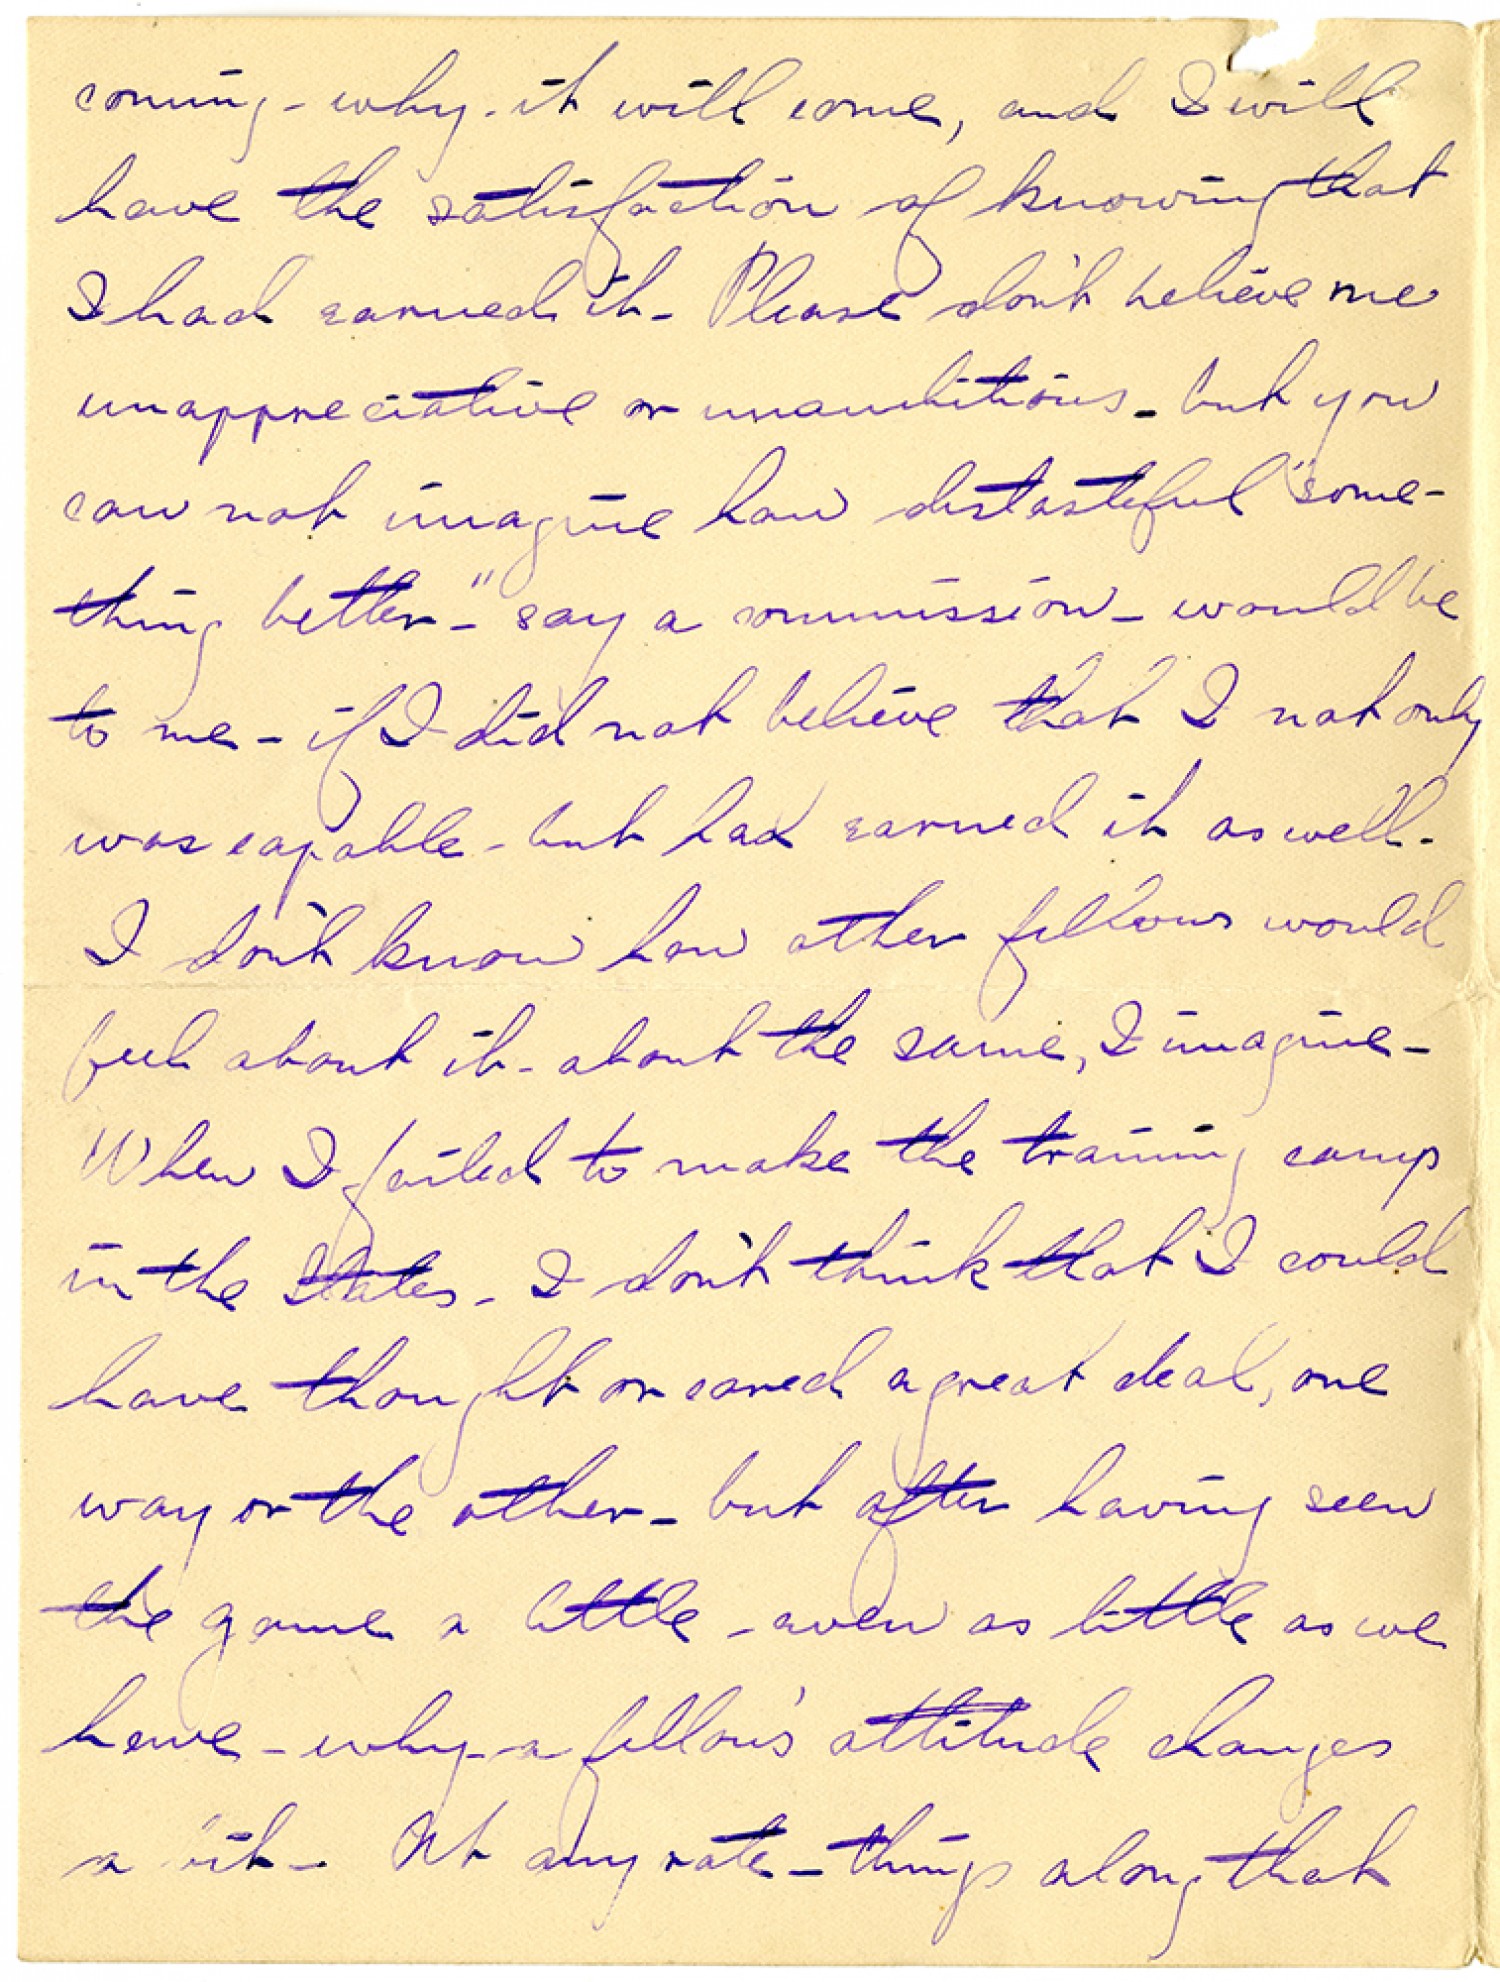 coming - why - it will come, and I will
have the satisfaction of knowing that
I had earned it - Please don't believe me
unappreciative or unambitious - but you
can not imagine how distasteful "some-
thing better -" say a commission - would be
to me - if I did not believe that I not only
was capable - but had earned it as well -
I don't know how other fellows would
feel about it - about the same, I imagine -
When I failed to make the training camp
in the States - I don't think that I could
have thought or cared a great deal, one
way or the other - but after having seen
the game a little - even as little as we
have - why - a fellow's attitude changes
a bit - At any rate - things along that